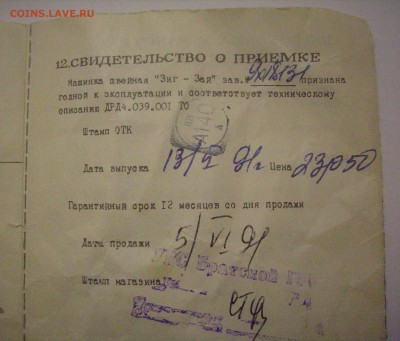 COINS.LAVE.RU
12.СВИДЕТЕЛЬСТВО О ПРИЕМКЕ
Машинка швейная "Зиг - Заг" зав. признана
годной к эксплуатации и соответствует техническому
описанию ДРД4.039.001 ТО
Штамп ОТК
Дата выпуска 13/V 91г Цена 23р50
Гарантийный срок 12 месяцев со дня продажи
Дата продажи 5/VI 91
Братской
Штамп магазина